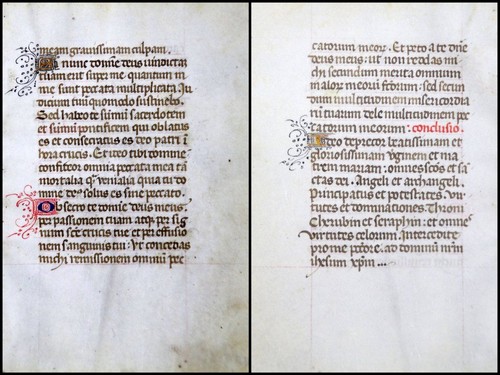 meam gravissimam culpam.
Et nunc domine deus iudicta
tuam erit super me. quantum in
me sunt peccata multiplicata. Ju
dicium tuum quomodo sustinebo.
Sed habeo te summum sacerdotem
et summum pontificem qui oblatus
es et consecratus es tuo patri i
hora crucis. Et ideo tibi domine
confiteor omnia peccata mea ta
mortalia qm venialia quia tu do
mine deus solus es sine peccato.
Obsecro te domine deus meus.
per passionem tuam atqz per sig
num scte crucis tue et per effusio
nem sanguinis tui. Ut concedas
michi remissionem omnium pec
catorum meorz. Et peto a te dne
deus meus. ut non reddas mi
chi secundum merita omnium
malorz meorum factorum. sed secun
dum multitudinem misericordia
rum tuarum dele multitudinem pec
catorum meorum. conclusio.
Ideo deprecor beatissimam et
gloriosissimam virginem et ma
trem mariam. omnes scos et sa
ctas dei. Angeli et archangeli.
Principatus et potestates. Virtu
tes et dominationes. Throni
Cherubin et seraphin. et omnes
virtutes celorum. Intercedite
pro me pctore. ad dominum nrm
ihesum xpm ...